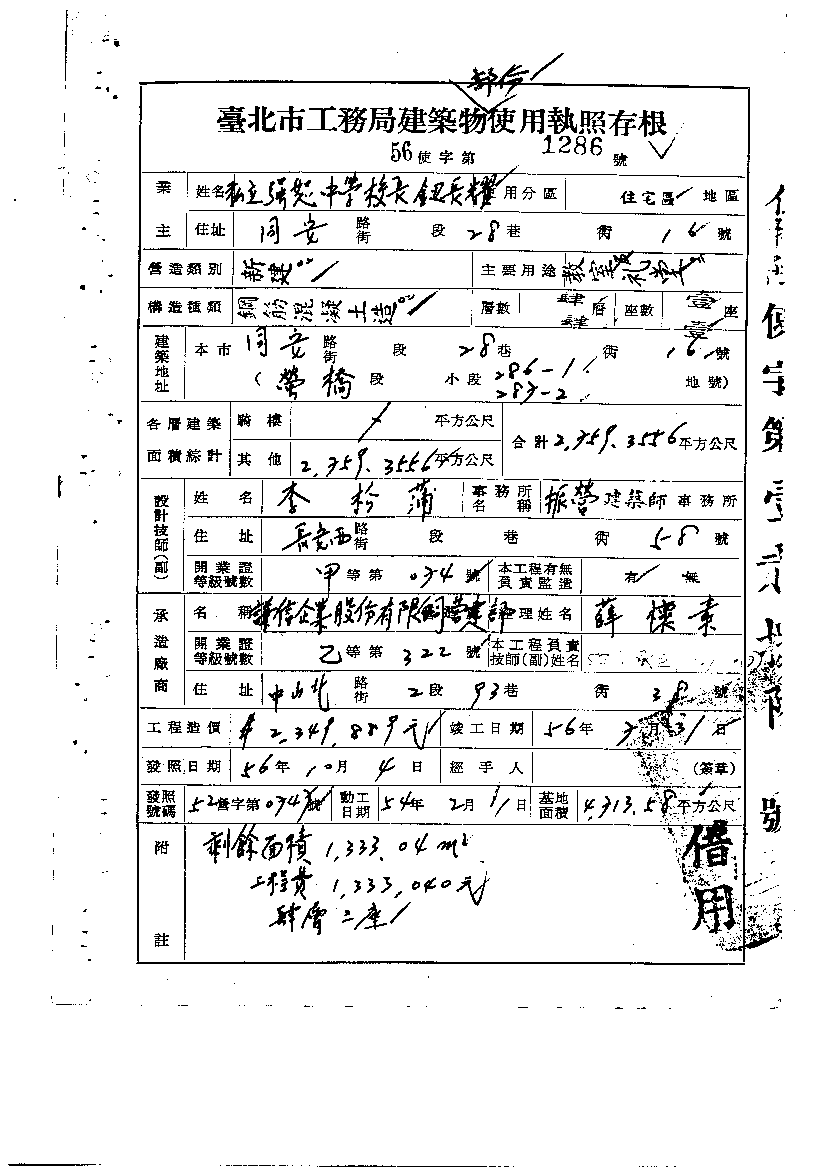 部份
臺北市工務局建築物使用執照存根
56使字第 1286 號
業主 姓名 私立強恕中學校長鈕長耀 使用分區 住宅區 地區
住址 同安 路街 段 28巷 街 16 號
營造類別 新建 主要用途 教室禮堂
構造種類 鋼筋混凝土造 層數 肆層 座數 壹座
肆 壹
建築地址 本市 同安 路街 段 28巷 街 16 號
(螢橋段 小段 286-1 地號)
287-2
各層建築面積綜計 騎樓 平方公尺 合計 2,359.3556 平方公尺
其他 2,359.3556 平方公尺
設計技師(副) 姓名 李松蒲 事務所名稱 振營建築師事務所
住址 長安西 路街 段 巷 街 58 號
開業證等級號數 甲等第 034 號 本工程有無負責監造 有 無
承造廠商 名稱 企業股份有限 經理姓名 薛懷素
開業證等級號數 乙等第 322 號 本工程負責技師(副)姓名
住址 中山北 路街 2段 93巷 街 38 號
工程造價 2,349,889元 竣工日期 56年 3月31日
發照日期 56年10月4日 經手人 (簽章)
發照號碼 52營字第 034 號 動工日期 54年2月1日 基地面積 4,313.58 平方公尺
附註 剩餘面積 1,333.04 m²
工程費 1,333,040元
肆層二座
借用
號